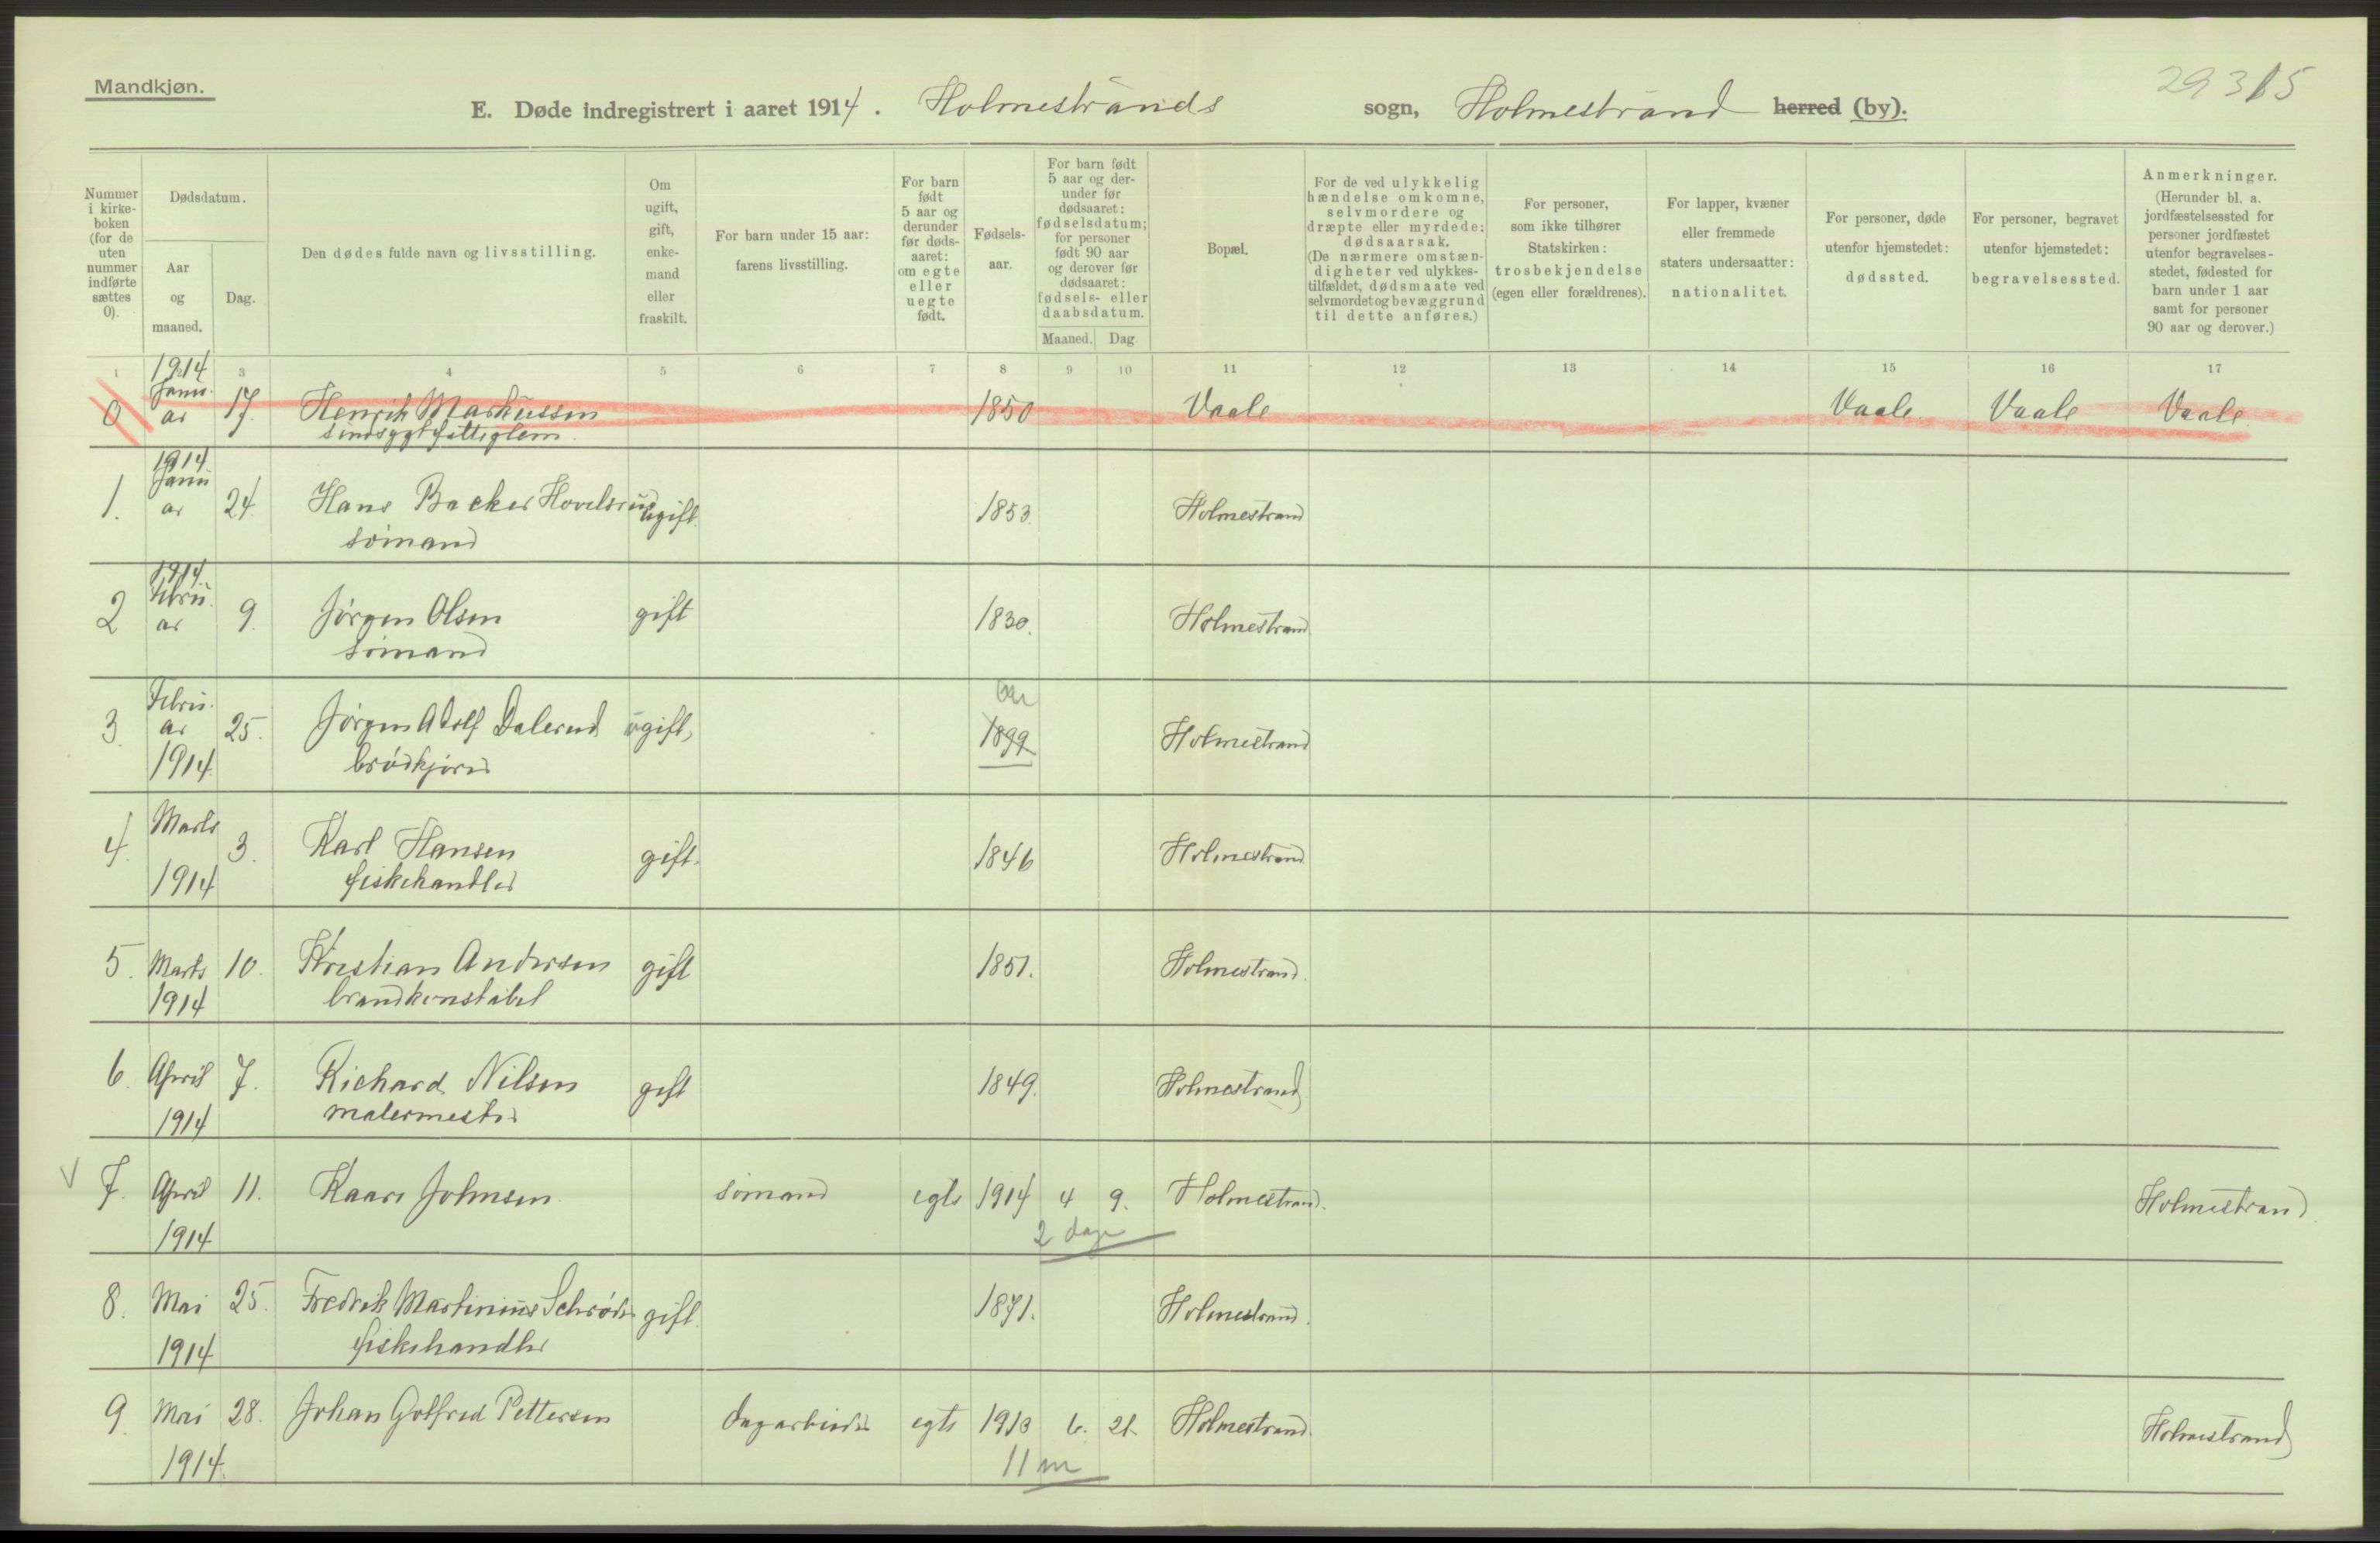 Mandkjøn.
29315
E. Døde indregistrert i aaret 1914. Holmestrands sogn, Holmestrand herred (by).
Nummer i kirke-boken (for de uten nummer indførte sættes 0).
Dødsdatum.
Aar og maaned.
Dag.
Den dødes fulde navn og livsstilling.
Om ugift, gift, enke-mand eller fraskilt.
For barn under 15 aar: farens livsstilling.
For barn født 5 aar og derunder før døds-aaret: om egte eller uegte født.
Fødsels-aar.
For barn født 5 aar og der-under før dødsaaret: fødselsdatum; for personer født 90 aar og derover før dødsaaret: fødsels- eller daabsdatum.
Maaned. Dag
Bopæl.
For de ved ulykkelig hændelse omkomne, selvmordere og dræpte eller myrdede: dødsaarsak. (De nærmere omstæn-digheter ved ulykkes-tilfældet, dødsmaate ved selvmordet og bevæggrund til dette anføres.)
For personer, som ikke tilhører Statskirken: trosbekjendelse (egen eller forældrenes).
For lapper, kvæner eller fremmede staters undersaatter: nationalitet.
For personer, døde utenfor hjemstedet: dødssted.
For personer, begravet utenfor hjemstedet: begravelsessted.
Anmerkninger. (Herunder bl. a. jordfæstelsessted for personer jordfæstet utenfor begravelses-stedet, fødested for barn under 1 aar samt for personer 90 aar og derover.)
1 3 4 5 6 7 8 9 10 11 12 13 14 15 16 17
0 1914 Januar 17. Henrik Markussen 1850 Vaale Vaale Vaale Vaale.
sindsygt fattiglem.
1. 1914 Januar 24. Hans Backer Hovelsrud ugift. 1853. Holmestrand
sømand
2 1914 Februar 9. Jørgen Olsen gift 1830. Holmestrand
sømand
3. Februar 1914 25. Jørgen Adolf Dalerud ugift, 1899 Holmestrand
brødkjører
4. Marts 1914 3. Karl Hansen gift. 1846 Holmestrand
fiskehandler
5. Marts 1914 10. Kristian Andersen gift 1851. Holmestrand.
brandkonstabel
6. April 1914 7. Richard Nilsen gift 1849. Holmestrand
malermester
7. April 1914 11. Kaare Johnsen sømand egte 1914 4 9. Holmestrand. Holmestrand.
2 dage
8. Mai 1914 25. Fredrik Martinius Schrøder gift. 1871. Holmestrand.
fiskehandler
9. Mai 1914. 28. Johan Gotfred Pettersen dagarbeider egte 1913 6. 21. Holmestrand. Holmestrand
11 m